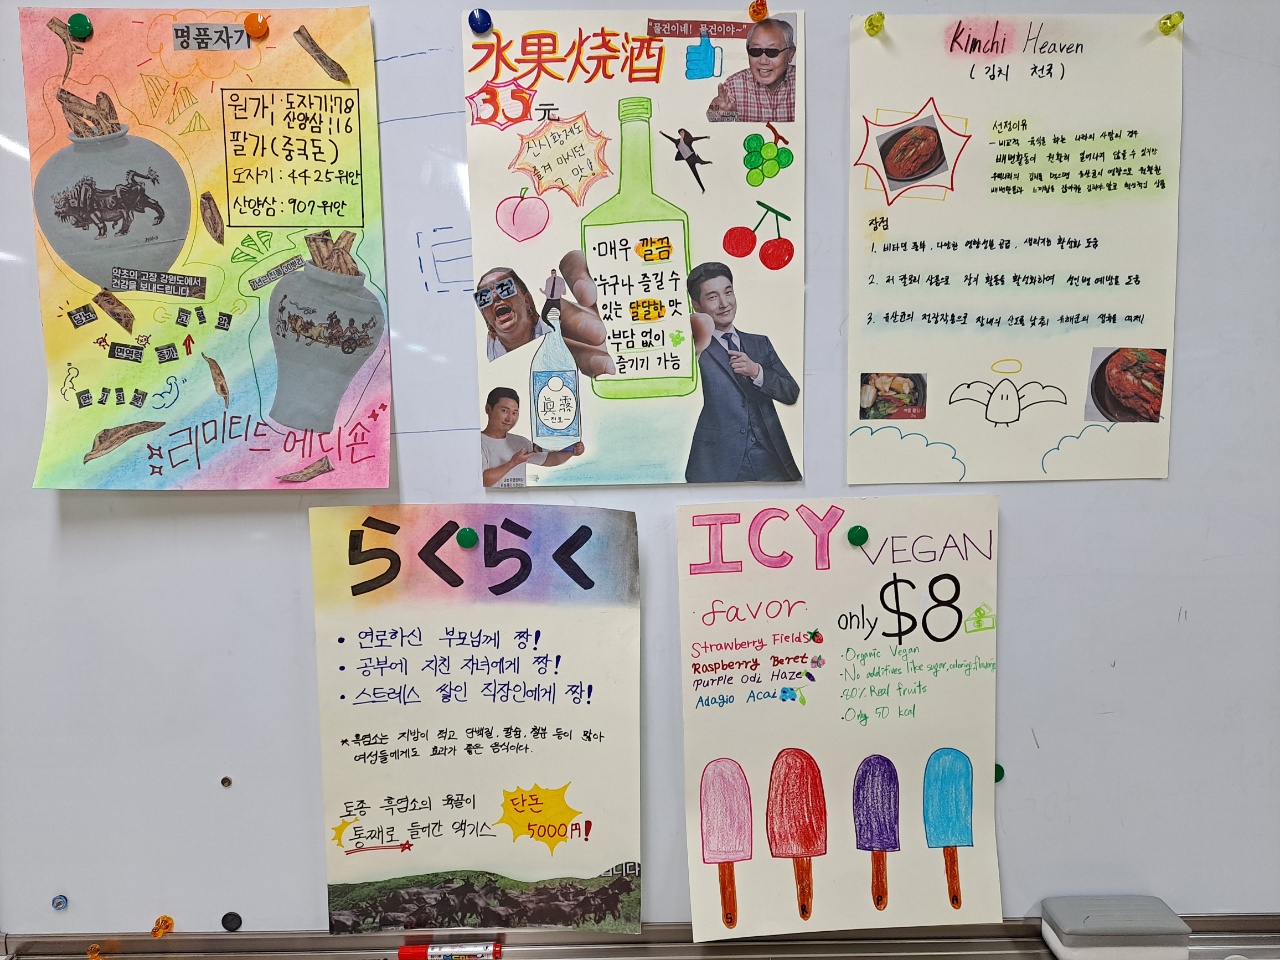 명품자기
원가: 도자기:78
산양삼:16
팔가(중국돈)
도자기: 4425위안
산양삼: 907위안
약초의 고장 강원도에서
건강을 보내드립니다
면역력 증가
리미티드 에디숀
水果烧酒
35元
"물건이네! 물건이야~"
진시황제도
즐겨 마시던
그 맛!
·매우 깔끔
누구나 즐길 수
있는 달달한 맛
·부담 없이
즐기기 가능
소주
眞露
-진로-
Kimchi Heaven
(김치 천국)
선정이유
- 비교적 육식을 하는 나라의 사람의 경우
배변활동이 원활히 일어나지 않을 수 있지만
장점
1. 비타민 풍부, 다양한 영양성분 공급, 생리기능 활성화 도움
2. 저 칼로리 식품으로 장의 활동을 활성화하여 성인병 예방을 도움
3. 유산균의 정장작용으로 장내의 산도를 낮춰 유해균의 생육을 억제
らくらく
• 연로하신 부모님께 짱!
• 공부에 지친 자녀에게 짱!
• 스트레스 쌓인 직장인에게 짱!
* 흑염소는 지방이 적고 단백질, 칼슘, 철분 등이 많아
여성들에게도 효과가 좋은 음식이다.
토종 흑염소의 육골이
통째로 들어간 액기스
단돈
5000円!
ICY VEGAN
only $8
·favor·
Strawberry Fields
Raspberry Beret
Purple Odi Haze
Adagio Acai
·Organic Vegan
·No additives like sugar, coloring, flavoring
·80% Real fruits
·Only 50 kcal
S R P A